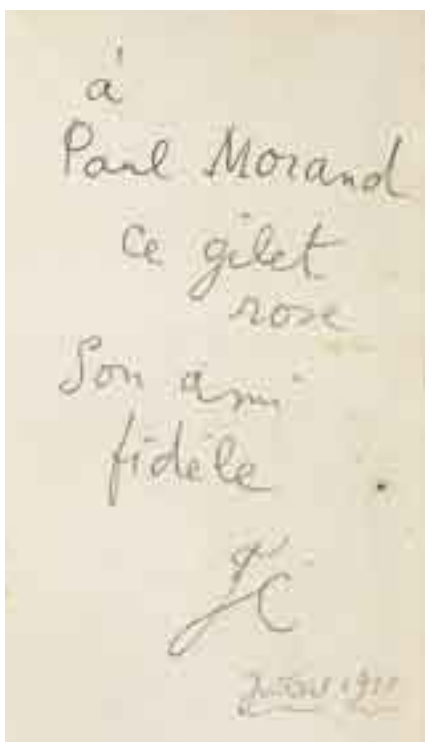 à
Paul Morand
ce gilet
rose
Son ami
fidèle
JC